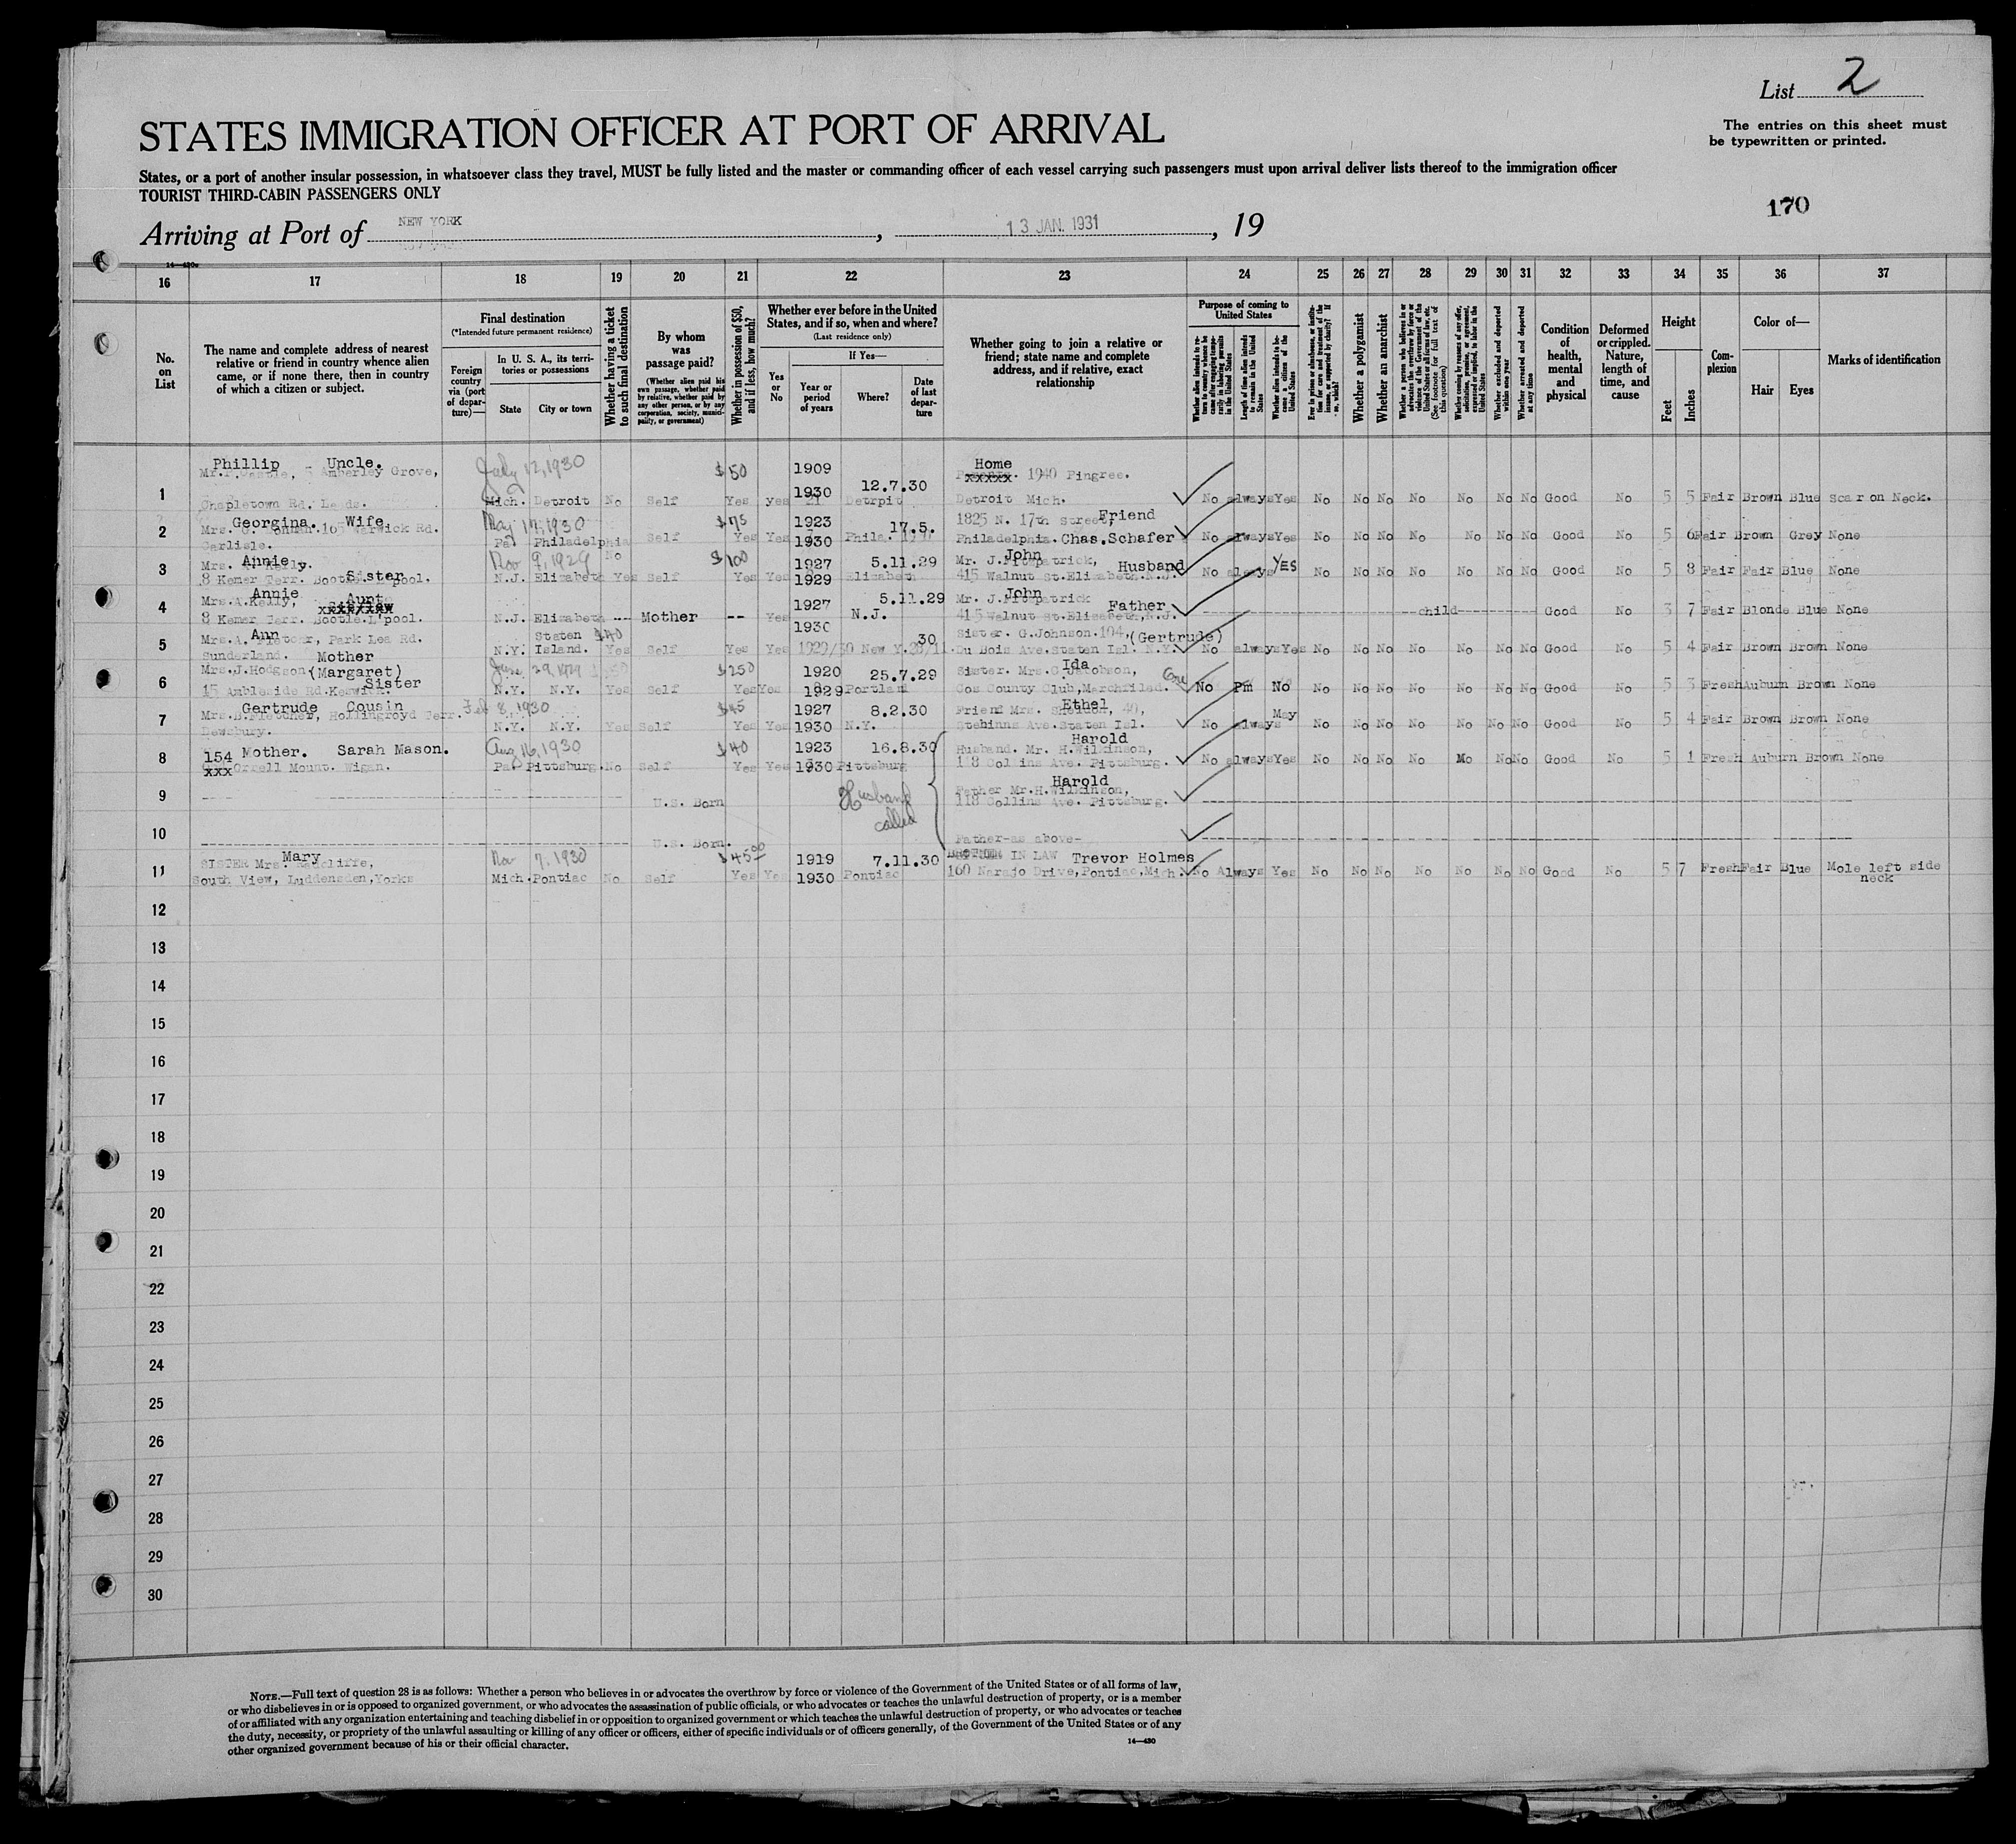 List 2
STATES IMMIGRATION OFFICER AT PORT OF ARRIVAL
The entries on this sheet must
be typewritten or printed.
States, or a port of another insular possession, in whatsoever class they travel, MUST be fully listed and the master or commanding officer of each vessel carrying such passengers must upon arrival deliver lists thereof to the immigration officer
TOURIST THIRD-CABIN PASSENGERS ONLY
170
Arriving at Port of NEW YORK, 13 JAN. 1931, 19
14—430
16 17 18 19 20 21 22 23 24 25 26 27 28 29 30 31 32 33 34 35 36 37
No. on List
The name and complete address of nearest relative or friend in country whence alien came, or if none there, then in country of which a citizen or subject.
Final destination
(*Intended future permanent residence)
Foreign country via (port of departure)—
In U. S. A., its territories or possessions
State
City or town
Whether having a ticket to such final destination
By whom was passage paid?
(Whether alien paid his own passage, whether paid by relative, whether paid by any other person, or by any corporation, society, municipality, or government)
Whether in possession of $50, and if less, how much?
Whether ever before in the United States, and if so, when and where?
(Last residence only)
If Yes—
Yes or No
Year or period of years
Where?
Date of last departure
Whether going to join a relative or friend; state name and complete address, and if relative, exact relationship
Purpose of coming to United States
Whether alien intends to return to country whence he came after engaging temporarily in laboring pursuits in the United States
Length of time alien intends to remain in the United States
Whether alien intends to become a citizen of the United States
Ever in prison or almshouse, or institution for care and treatment of the insane, or supported by charity? If so, which?
Whether a polygamist
Whether an anarchist
Whether a person who believes in or advocates the overthrow by force or violence of the Government of the United States or all forms of law, etc. (See footnote for full text of this question)
Whether coming by reason of any offer, solicitation, promise, or agreement, expressed or implied, to labor in the United States
Whether excluded and deported within one year
Whether arrested and deported at any time
Condition of health, mental and physical
Deformed or crippled. Nature, length of time, and cause
Height
Feet
Inches
Complexion
Color of—
Hair
Eyes
Marks of identification
Phillip - Uncle. July 12, 1930 $50 1909 Home
Amberley Grove, 12.7.30 xxxxxx. 1940 Pingree.
1 Chapletown Rd. Leeds. Mich. Detroit No Self Yes yes 1930 Detrpit Detroit Mich. No always Yes No No No No No No No Good No 5 5 Fair Brown Blue Scar on Neck.
Georgina. Wife May 17, 1930 $75 1923 17.5. 1825 N. 17th Street, Friend
2 Mrs. G. 105 Warwick Rd. Carlisle. Pa. Philadelphia No Self Yes Yes 1930 Phila. Philadelphia. Chas. Schafer No always Yes No No No No No No No Good No 5 6 Fair Brown Grey None
Annie Nov 9, 1929 $100 1927 5.11.29 John
3 Mrs. A. Kelly. Sister Mr. J. Fitzpatrick, Husband
8 Kemer Terr. Bootle. L'pool. N.J. Elizabeth Yes Self Yes Yes 1929 Elizabeth 415 Walnut St. Elizabeth. N.J. No always YES No No No No No No No Good No 5 8 Fair Fair Blue None
Annie Aunt 5.11.29 John
4 Mrs. A. Kelly, xxxxxxxxx 1927 Mr. J. Fitzpatrick Father
8 Kemer Terr. Bootle. L'pool. N.J. Elizabeth -- Mother -- Yes N.J. 415 Walnut St. Elizabeth, N.J. child Good No 3 7 Fair Blonde Blue None
Ann Staten $40 1930 Sister. G. Johnson. 104, (Gertrude)
5 Mrs. A. Park Lea Rd. Sunderland. Mother N.Y. Island. Yes Self Yes Yes 1929/30 New Y. 28/11. 30 Du Bois Ave. Staten Isl. N.Y. No always Yes No No No No No No No Good No 5 4 Fair Brown Brown None
6 Mrs. J. Hodgson (Margaret) Sister June 29, 1929 $250 1920 25.7.29 Sister. Mrs. C. Jacobson, Ida
15 Ambleside Rd. Keswick. N.Y. N.Y. Yes Self Yes Yes 1929 Portland Cos County Club, Marchfiled. No Pm No No No No No No No No Good No 5 3 Fresh Auburn Brown None
Gertrude Cousin Feb 8, 1930 $45 1927 8.2.30 Ethel
7 Mrs. B. Fletcher, Hollingroyd Terr. Dewsbury. N.Y. N.Y. Yes Self Yes Yes 1930 N.Y. Friend Mrs. Sheldon, 40, Stebinns Ave. Staten Isl. No always May No No No No No No No Good No 5 4 Fair Brown Brown None
154 Mother. Sarah Mason. Aug 16, 1930 $40 1923 16.8.30 Harold
8 xxx Orrell Mount. Wigan. Pa. Pittsburg. No Self Yes Yes 1930 Pittsburg Husband. Mr. H. Wilkinson, 118 Collins Ave. Pittsburg. No always Yes No No No No Mo No No Good No 5 1 Fresh Auburn Brown None
9 U.S. Born Husband called Harold
Father Mr. H. Wilkinson, 118 Collins Ave. Pittsburg.
10 U.S. Born. Father-as above-
Mary Nov 7, 1930 $45 00 1919 7.11.30 IN LAW Trevor Holmes
11 SISTER Mrs. Radcliffe, South View, Luddensden, Yorks Mich. Pontiac No Self Yes Yes 1930 Pontiac 160 Narajo Drive, Pontiac, Mich. No Always Yes No No No No No No No Good No 5 7 Fresh Fair Blue Mole left side neck
12
13
14
15
16
17
18
19
20
21
22
23
24
25
26
27
28
29
30
NOTE.—Full text of question 28 is as follows: Whether a person who believes in or advocates the overthrow by force or violence of the Government of the United States or of all forms of law,
or who disbelieves in or is opposed to organized government, or who advocates the assassination of public officials, or who advocates or teaches the unlawful destruction of property, or is a member
of or affiliated with any organization entertaining and teaching disbelief in or opposition to organized government or which teaches the unlawful destruction of property, or who advocates or teaches
the duty, necessity, or propriety of the unlawful assaulting or killing of any officer or officers, either of specific individuals or of officers generally, of the Government of the United States or of any
other organized government because of his or their official character.
14—430